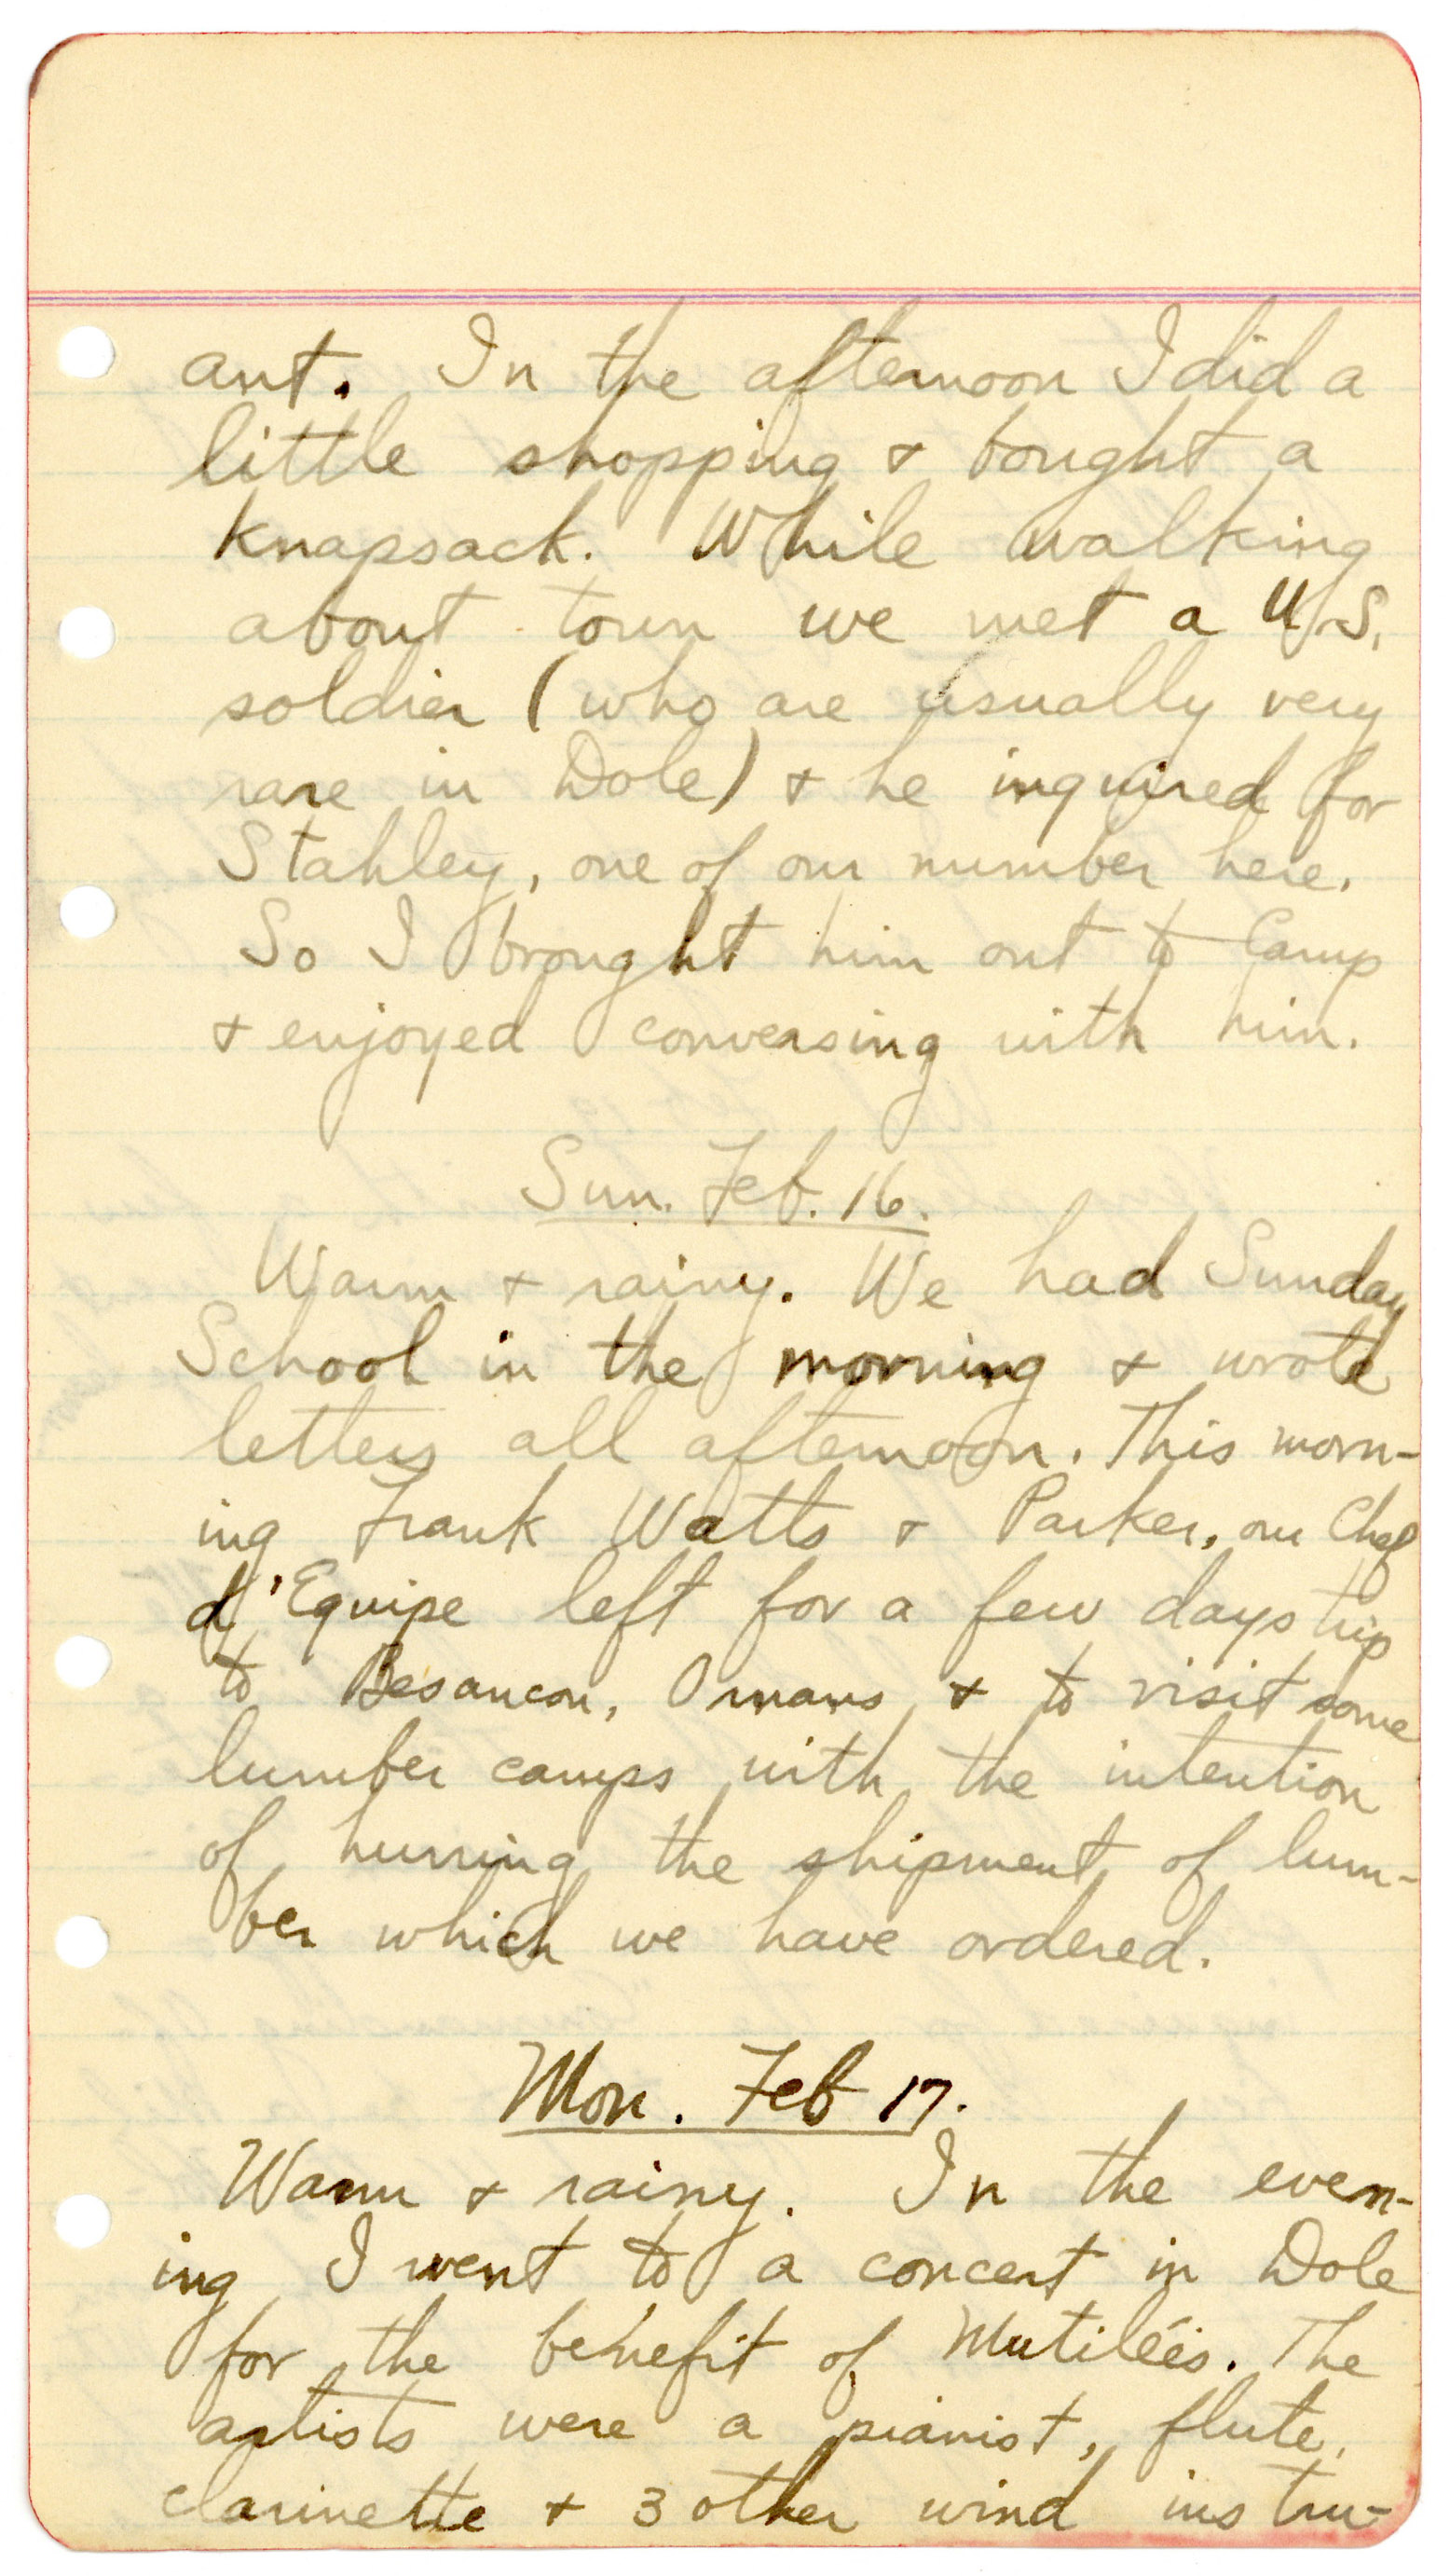 ant. In the afternoon I did a
little shopping + bought a
knapsack. While walking
about town we met a U.S.
soldier (who are usually very
rare in Dole) + he inquired for
Stahley, one of our number here.
So I brought him out to Camp
+ enjoyed conversing with him.
Sun. Feb. 16.
Warm + rainy. We had Sunday
School in the morning + wrote
letters all afternoon. This morn-
ing Frank Watts + Parker, our Chef
d'Equipe left for a few days trip
to Besancon, Ornans, + to visit some
lumber camps with the intention
of hurring the shipment of lum-
ber which we have ordered.
Mon. Feb 17.
Warm + rainy. In the even-
ing I went to a concert in Dole
for the benefit of Mutilées. The
artists were a pianist, flute,
clarinette + 3 other wind instru-